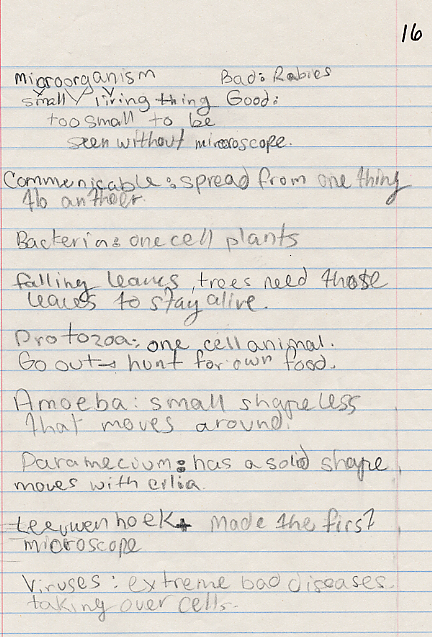 16
microorganism Bad: Rabies
small living thing Good:
too small to be
seen without microscope.
Communicable: spread from one thing
to anther.
Bacteria: one cell plants
falling leaves, trees need those
leaves to stay alive.
Protozoa: one cell animal.
Go out → hunt for own food.
Amoeba: small shapeless
that moves around.
Paramecium: has a solid shape,
moves with cilia.
Leeuwenhoek made the first
microscope
Viruses: extreme bad diseases
taking over cells.